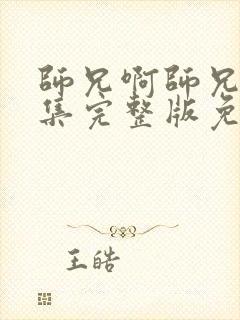 師兄啊師兄
集完整版免
王皓